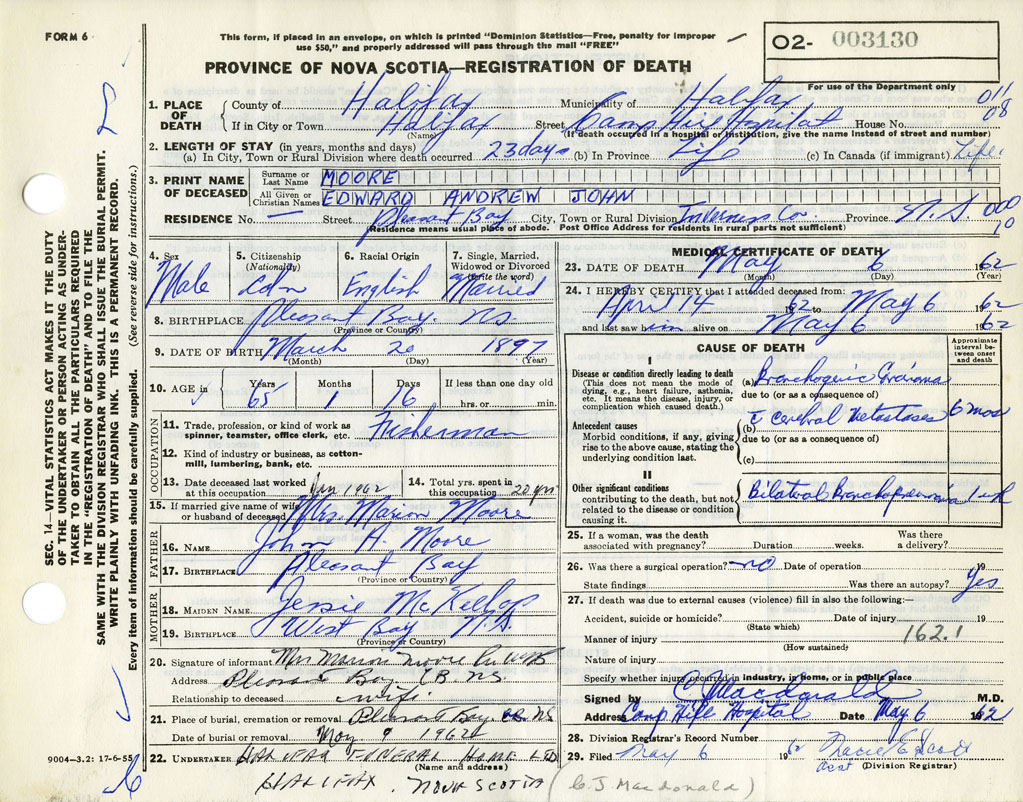 FORM 6
This form, if placed in an envelope, on which is printed "Dominion Statistics—Free, penalty for improper
use $50," and properly addressed will pass through the mail "FREE"
O2- 003130
PROVINCE OF NOVA SCOTIA—REGISTRATION OF DEATH
For use of the Department only
011
08
1. PLACE OF DEATH County of Halifax Municipality of Halifax
If in City or Town Halifax Street Camp Hill Hospital House No.
(Name) (If death occurred in a hospital or institution, give the name instead of street and number)
2. LENGTH OF STAY (in years, months and days)
(a) In City, Town or Rural Division where death occurred 23 days (b) In Province Life (c) In Canada (if immigrant) Life
3. PRINT NAME OF DECEASED Surname or Last Name MOORE
All Given or Christian Names EDWARD ANDREW JOHN
RESIDENCE No. — Street Pleasant Bay City, Town or Rural Division Inverness Co. Province N.S. 000
10
(Residence means usual place of abode. Post Office Address for residents in rural parts not sufficient)
4. Sex Male
5. Citizenship (Nationality) Cdn
6. Racial Origin English
7. Single, Married, Widowed or Divorced (write the word) Married
8. BIRTHPLACE Pleasant Bay. N.S.
(Province or Country)
9. DATE OF BIRTH March 20 1897
(Month) (Day) (Year)
10. AGE in Years 65 Months 1 Days 16 If less than one day old
hrs. or min.
OCCUPATION
11. Trade, profession, or kind of work as
spinner, teamster, office clerk, etc. Fisherman
12. Kind of industry or business, as cotton-
mill, lumbering, bank, etc.
13. Date deceased last worked
at this occupation Jan 1962
14. Total yrs. spent in
this occupation 20 yrs
15. If married give name of wife
or husband of deceased Mrs. Marion Moore
FATHER
16. NAME John A. Moore
17. BIRTHPLACE Pleasant Bay
(Province or Country)
MOTHER
18. MAIDEN NAME Jessie McKellop
19. BIRTHPLACE West Bay N.S.
(Province or Country)
20. Signature of informant Mrs Marion Moore
Address Pleasant Bay CB. NS.
Relationship to deceased wife
21. Place of burial, cremation or removal Pleasant Bay CB. NS
Date of burial or removal May 9 1962
22. UNDERTAKER HALIFAX FUNERAL HOME LTD
(Name and address)
HALIFAX, NOVA SCOTIA (C. J. Macdonald)
MEDICAL CERTIFICATE OF DEATH
23. DATE OF DEATH May 6 1962
(Month) (Day) (Year)
24. I HEREBY CERTIFY that I attended deceased from:
April 14 1962 to May 6 1962
and last saw him alive on May 6 1962
CAUSE OF DEATH
Approximate interval between onset and death
I
Disease or condition directly leading to death
(This does not mean the mode of
dying, e.g., heart failure, asthenia,
etc. It means the disease, injury, or
complication which caused death.)
(a) Bronchogenic Carcinoma
due to (or as a consequence of)
Antecedent causes
Morbid conditions, if any, giving
rise to the above cause, stating the
underlying condition last.
(b) c̄ cerebral metastases 6 mos
due to (or as a consequence of)
(c)
II
Other significant conditions
contributing to the death, but not
related to the disease or condition
causing it.
Bilateral Bronchopneumonia 1 wk
25. If a woman, was the death
associated with pregnancy? Duration weeks. Was there
a delivery?
26. Was there a surgical operation? no Date of operation 19
State findings Was there an autopsy? Yes
27. If death was due to external causes (violence) fill in also the following:—
Accident, suicide or homicide? Date of injury 19
(State which)
Manner of injury 162.1
(How sustained)
Nature of injury
Specify whether injury occurred in industry, in home, or in public place
Signed by C J Macdonald M.D.
Address Camp Hill Hospital Date May 6 1962
28. Division Registrar's Record Number
29. Filed May 6 1962
(Division Registrar)
SEC. 14—VITAL STATISTICS ACT MAKES IT THE DUTY
OF THE UNDERTAKER OR PERSON ACTING AS UNDER-
TAKER TO OBTAIN ALL THE PARTICULARS REQUIRED
IN THE "REGISTRATION OF DEATH" AND TO FILE THE
SAME WITH THE DIVISION REGISTRAR WHO SHALL ISSUE THE BURIAL PERMIT.
WRITE PLAINLY WITH UNFADING INK. THIS IS A PERMANENT RECORD.
Every item of information should be carefully supplied. (See reverse side for instructions.)
9004-3.2: 17-6-55